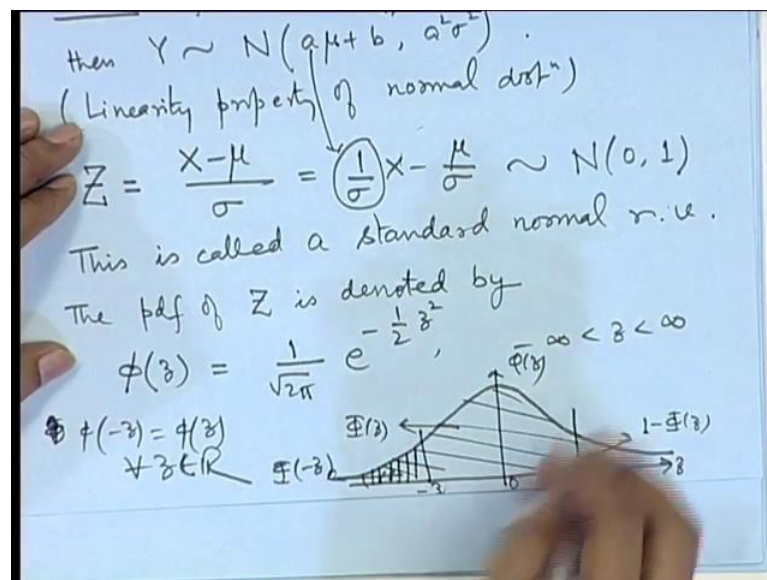 then Y ~ N(aμ + b, a²σ²).
(Linearity property of normal distⁿ)
Z = (X-μ)/σ = (1/σ)X - μ/σ ~ N(0, 1)
This is called a standard normal r.v.
The pdf of Z is denoted by
φ(z) = 1/√2π e^(-½z²), -∞ < z < ∞
φ(-z) = φ(z)
∀ z ∈ ℝ
φ(z)
Φ(z)
1-Φ(z)
Φ(-z)
-z 0 z